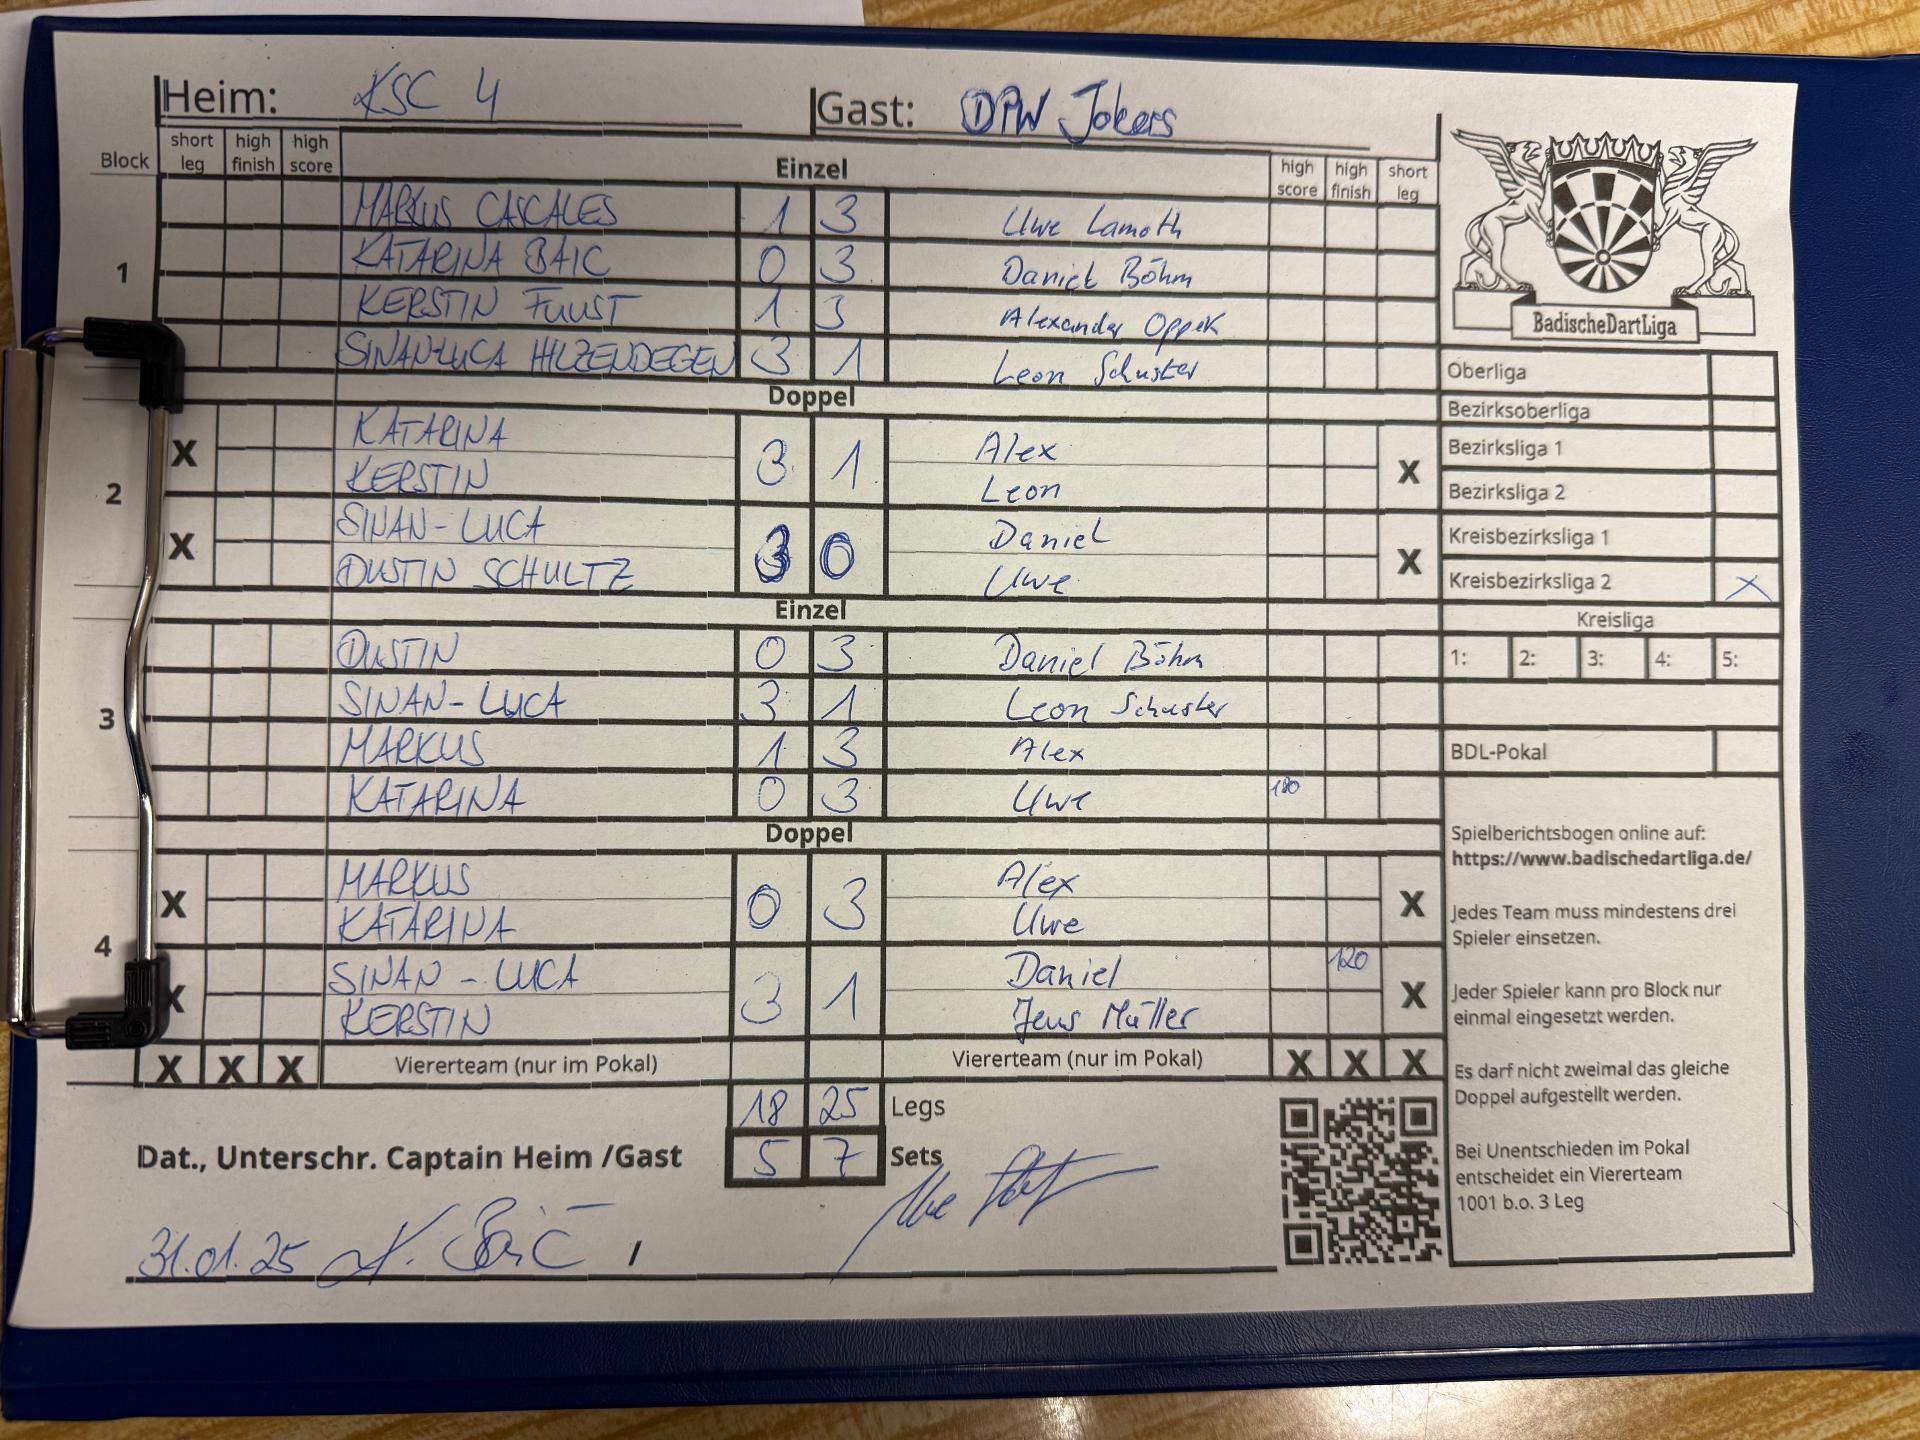 Heim: KSC 4 Gast: DPW Jokers
Block short leg high finish high score Einzel high score high finish short leg
1
MARKUS CASCALES 1 3 Uwe Lamoth
KATARINA BAIC 0 3 Daniel Böhm
KERSTIN FUUST 1 3 Alexander Oppek
SINAN-LUCA HILZENDEGEN 3 1 Leon Schuster
Doppel
2
X KATARINA 3 1 Alex X
KERSTIN Leon
X SINAN-LUCA 3 0 Daniel X
DUSTIN SCHULTZ Uwe
Einzel
3
DUSTIN 0 3 Daniel Böhm
SINAN-LUCA 3 1 Leon Schuster
MARKUS 1 3 Alex
KATARINA 0 3 Uwe 180
Doppel
4
X MARKUS 0 3 Alex X
KATARINA Uwe
X SINAN-LUCA 3 1 Daniel 120 X
KERSTIN Jens Müller
X X X Viererteam (nur im Pokal) Viererteam (nur im Pokal) X X X
18 25 Legs
Dat., Unterschr. Captain Heim /Gast 5 7 Sets
31.01.25 K. Baić /
BadischeDartLiga
Oberliga
Bezirksoberliga
Bezirksliga 1
Bezirksliga 2
Kreisbezirksliga 1
Kreisbezirksliga 2 X
Kreisliga
1: 2: 3: 4: 5:
BDL-Pokal
Spielberichtsbogen online auf:
https://www.badischedartliga.de/
Jedes Team muss mindestens drei
Spieler einsetzen.
Jeder Spieler kann pro Block nur
einmal eingesetzt werden.
Es darf nicht zweimal das gleiche
Doppel aufgestellt werden.
Bei Unentschieden im Pokal
entscheidet ein Viererteam
1001 b.o. 3 Leg